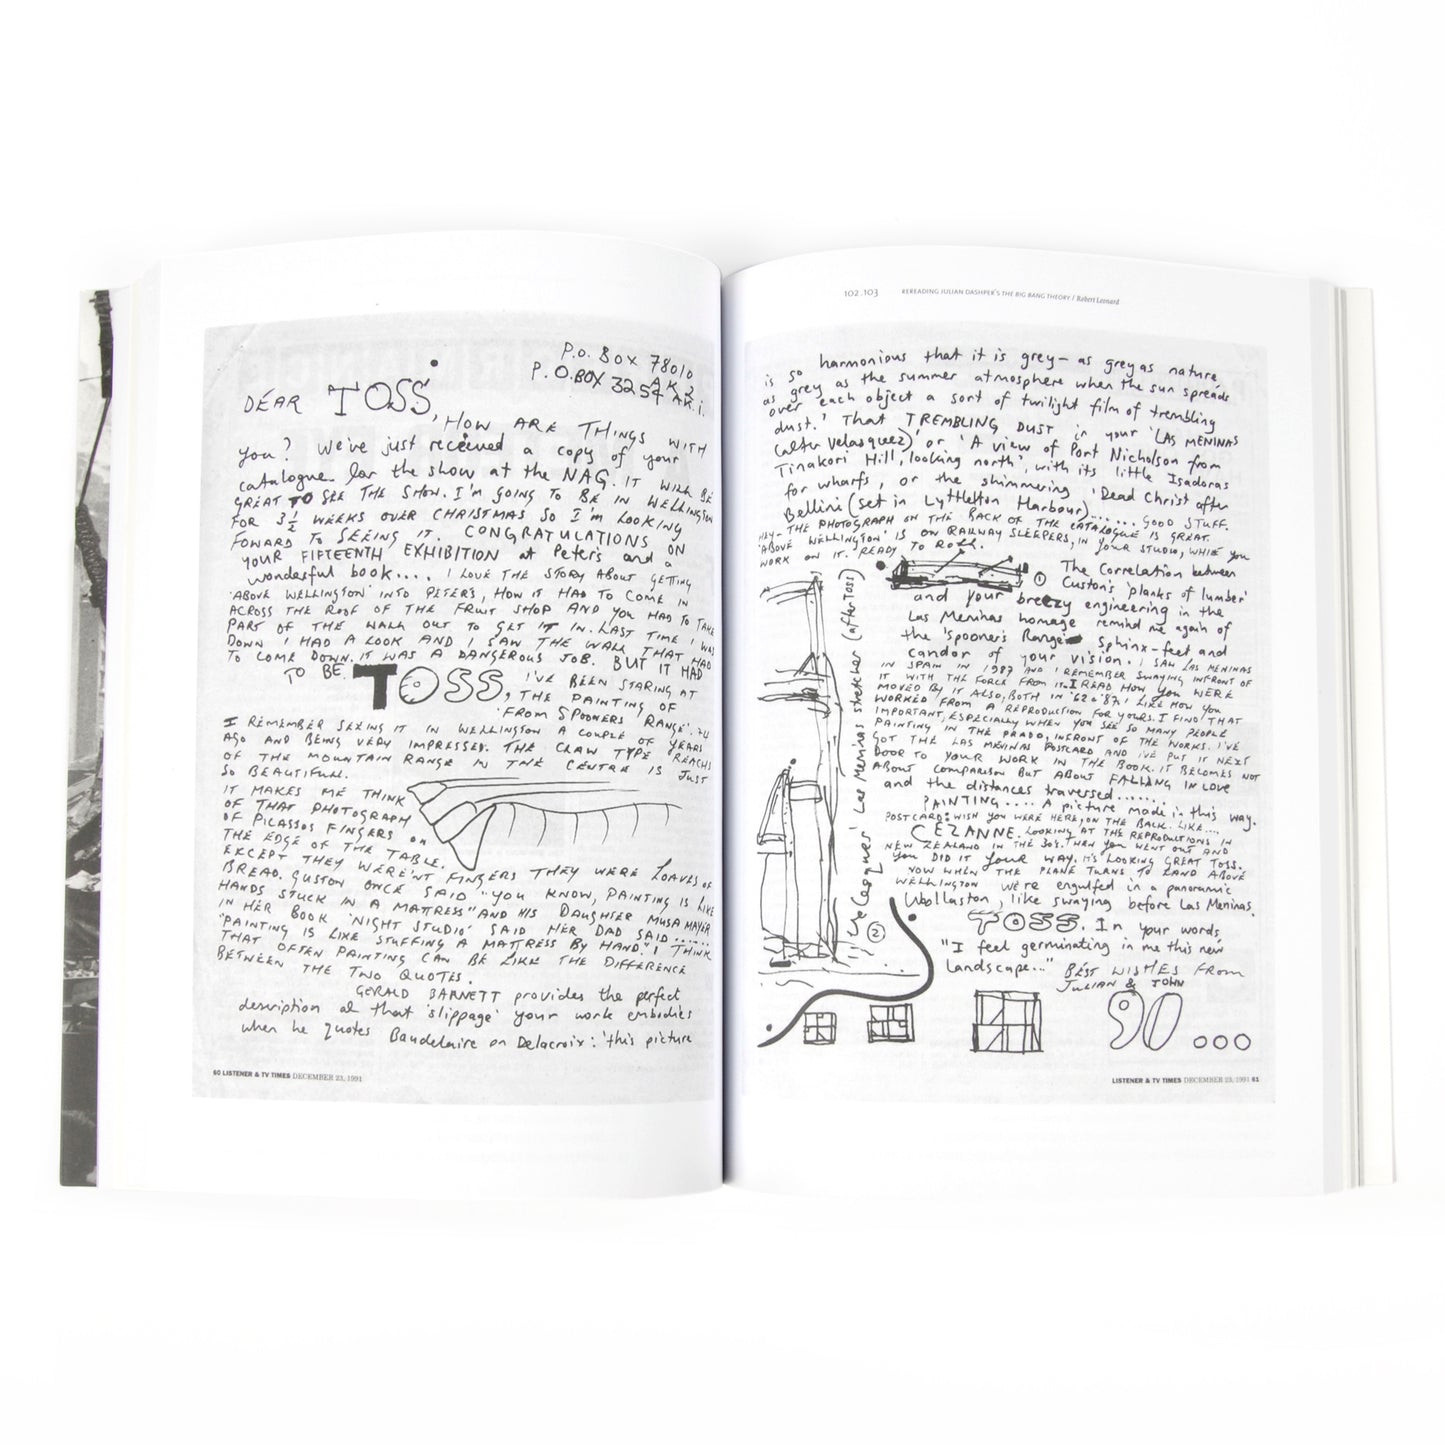 P.O. BOX 78010
AK 2
P.O.BOX 3254 AK.1.
DEAR TOSS,
HOW ARE THINGS WITH
you? We've just received a copy of your
catalogue for the show at the NAG. IT WILL BE
GREAT TO SEE THE SHOW. I'M GOING TO BE IN WELLINGTON
FOR 3½ WEEKS OVER CHRISTMAS SO I'M LOOKING
FOWARD TO SEEING IT. CONGRATULATIONS ON
YOUR FIFTEENTH EXHIBITION at Peter's and a
wonderful book.... I LOVE THE STORY ABOUT GETTING
'ABOVE WELLINGTON' INTO PETER'S, HOW IT HAD TO COME IN
ACROSS THE ROOF OF THE FRUIT SHOP AND YOU HAD TO TAKE
PART OF THE WALL OUT TO GET IT IN. LAST TIME I WAS
DOWN I HAD A LOOK AND I SAW THE WALL THAT HAD
TO COME DOWN. IT WAS A DANGEROUS JOB. BUT IT HAD
TO BE. TOSS, I'VE BEEN STARING AT
THE PAINTING OF
'FROM SPOONERS RANGE'.
I REMEMBER SEEING IT IN WELLINGTON A COUPLE OF YEARS
AGO AND BEING VERY IMPRESSED. THE CLAW TYPE REACHS
OF THE MOUNTAIN RANGE IN THE CENTRE IS JUST
SO BEAUTIFULL.
IT MAKES ME THINK
OF THAT PHOTOGRAPH
OF PICASSOS FINGERS ON
THE EDGE OF THE TABLE.
EXCEPT THEY WEREN'T FINGERS THEY WERE LOAVES OF
BREAD. GUSTON ONCE SAID "YOU KNOW, PAINTING IS LIKE
HANDS STUCK IN A MATTRESS" AND HIS DAUGHTER MUSA MAYER
IN HER BOOK 'NIGHT STUDIO' SAID HER DAD SAID......
"PAINTING IS LIKE STUFFING A MATTRESS BY HAND". I THINK
THAT OFTEN PAINTING CAN BE LIKE THE DIFFERENCE
BETWEEN THE TWO QUOTES.
GERALD BARNETT provides the perfect
description of that 'slippage' your work embodies
when he quotes Baudelaire on Delacroix: 'this picture
60 LISTENER & TV TIMES DECEMBER 23, 1991
102.103 REREADING JULIAN DASHPER'S THE BIG BANG THEORY / Robert Leonard
is so harmonious that it is grey – as grey as nature,
as grey as the summer atmosphere when the sun spreads
over each object a sort of twilight film of trembling
dust.' That TREMBLING DUST in your 'LAS MENINAS
(after Velasquez)' or 'A view of Port Nicholson from
Tinakori Hill, looking north', with its little Isadoras
for wharfs, or the shimmering 'Dead Christ after
Bellini (set in Lyttleton Harbour)...... GOOD STUFF.
HEY – THE PHOTOGRAPH ON THE BACK OF THE CATALOGUE IS GREAT.
'ABOVE WELLINGTON' IS ON RAILWAY SLEEPERS, IN YOUR STUDIO, WHILE YOU
WORK ON IT. READY TO ROLL.
1
The Correlation between
Custon's 'planks of lumber'
and your breezy engineering in the
Las Meninas homage remind me again of
the 'Spooner's Range' Sphinx-feet and
candor of your vision. I SAW LAS MENINAS
IN SPAIN IN 1987 AND I REMEMBER SWAYING INFRONT OF
IT WITH THE FORCE FROM IT. I READ HOW YOU WERE
MOVED BY IT ALSO, BOTH IN '62 & '87. I LIKE HOW YOU
WORKED FROM A REPRODUCTION FOR YOURS. I FIND THAT
IMPORTANT, ESPECIALLY WHEN YOU SEE SO MANY PEOPLE
PAINTING IN THE PRADO, INFRONT OF THE WORKS. I'VE
GOT THE LAS MENINAS POSTCARD AND I'VE PUT IT NEXT
DOOR TO YOUR WORK IN THE BOOK. IT BECOMES NOT
ABOUT COMPARISON BUT ABOUT FALLING IN LOVE
and the distances traversed.......
PAINTING.... A picture made in this way.
POSTCARD: WISH YOU WERE HERE, ON THE BACK. LIKE....
CEZANNE. LOOKING AT THE REPRODUCTIONS IN
NEW ZEALAND IN THE 30s. THEN YOU WENT OUT AND
YOU DID IT YOUR WAY. IT'S LOOKING GREAT TOSS.
NOW WHEN THE PLANE TURNS, TO LAND ABOVE
WELLINGTON we're engulfed in a panoramic
Wollaston, like swaying before Las Meninas.
TOSS. In your words,
"I feel germinating in me this new
landscape..." BEST WISHES FROM
JULIAN & JOHN
Velasquez' Las Meninas stretcher (after Toss)
2
90...
LISTENER & TV TIMES DECEMBER 23, 1991 61